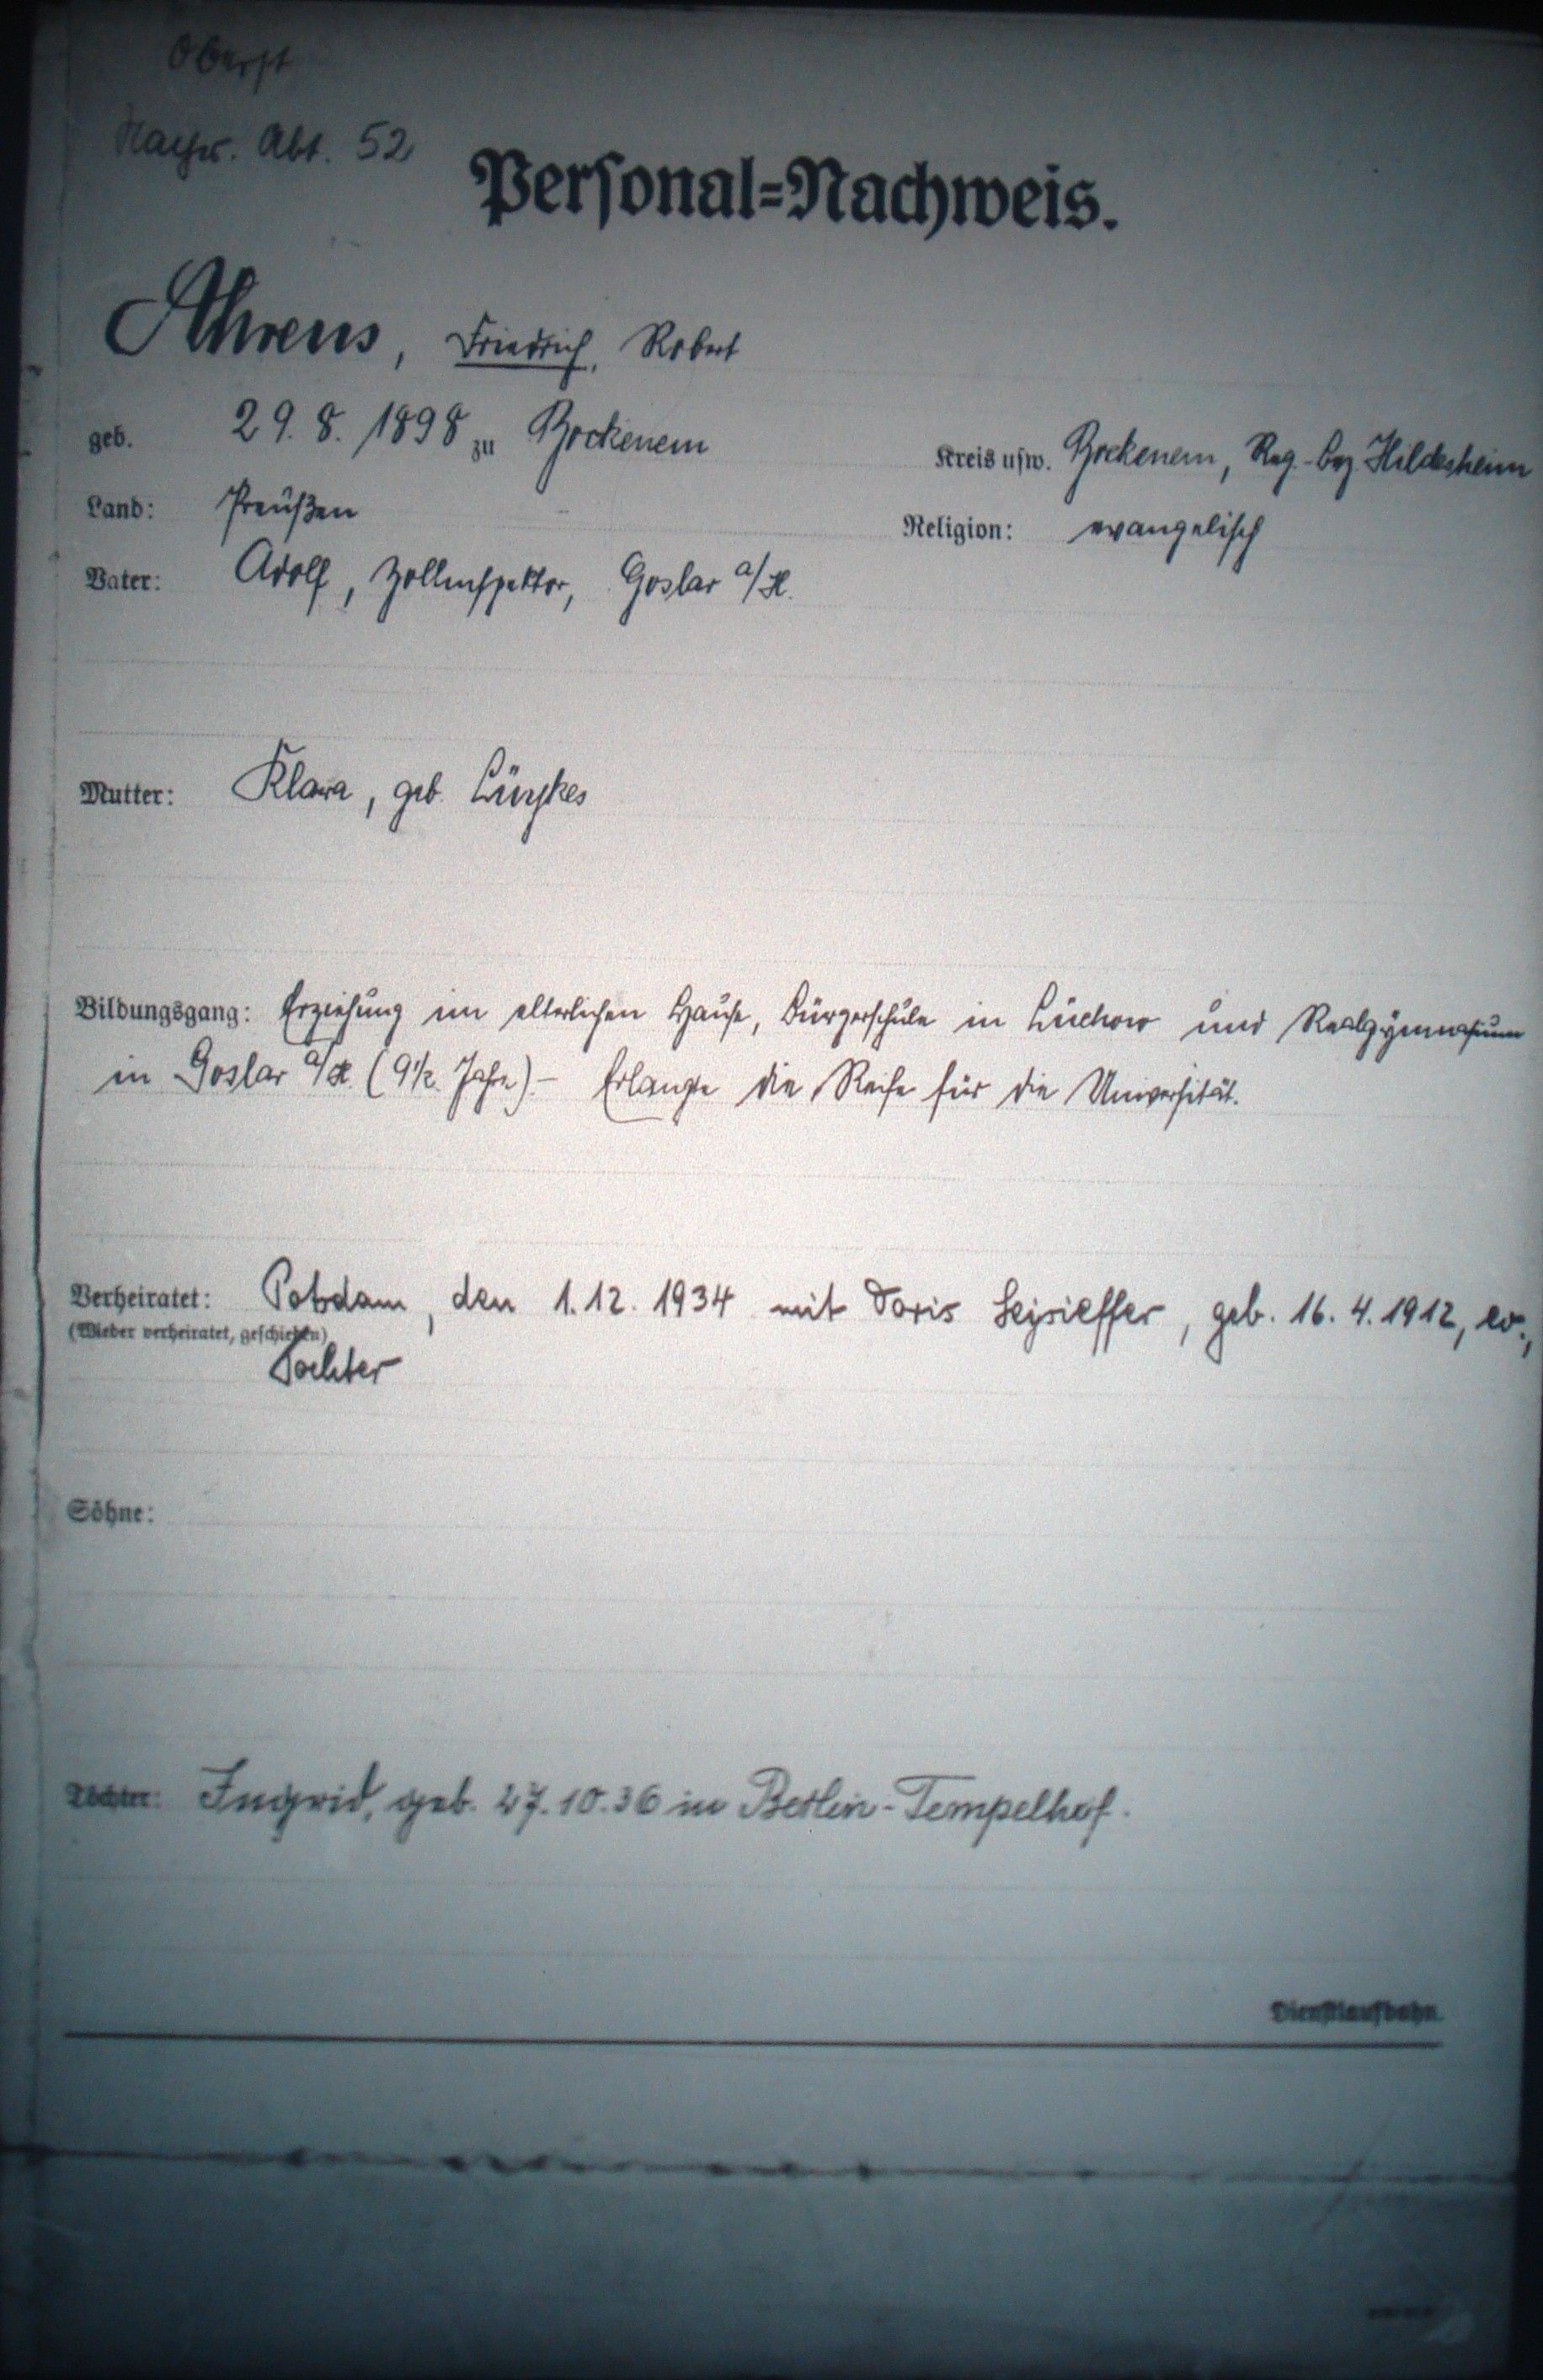 Oberst
Nachr. Abt. 52
Personal=Nachweis.
Ahrens, Friedrich, Robert
geb. 29. 8. 1898 zu Bockenem Kreis usw. Bockenem, Reg.-Bez. Hildesheim
Land: Preußen Religion: evangelisch
Vater: Adolf, Zollinspektor, Goslar a/H.
Mutter: Klara, geb.
Bildungsgang: Erziehung im elterlichen Hause, Bürgerschule in Lüchow und Realgymnasium
in Goslar a/H. (9½ Jahre). – Erlangte die Reife für die Universität.
Verheiratet: Potsdam, den 1. 12. 1934 mit Doris Leysieffer, geb. 16. 4. 1912, ev.,
(Wieder verheiratet, geschieden)
Tochter
Söhne:
Töchter: Ingrid, geb. 27. 10. 36 in Berlin-Tempelhof.
Dienstlaufbahn.